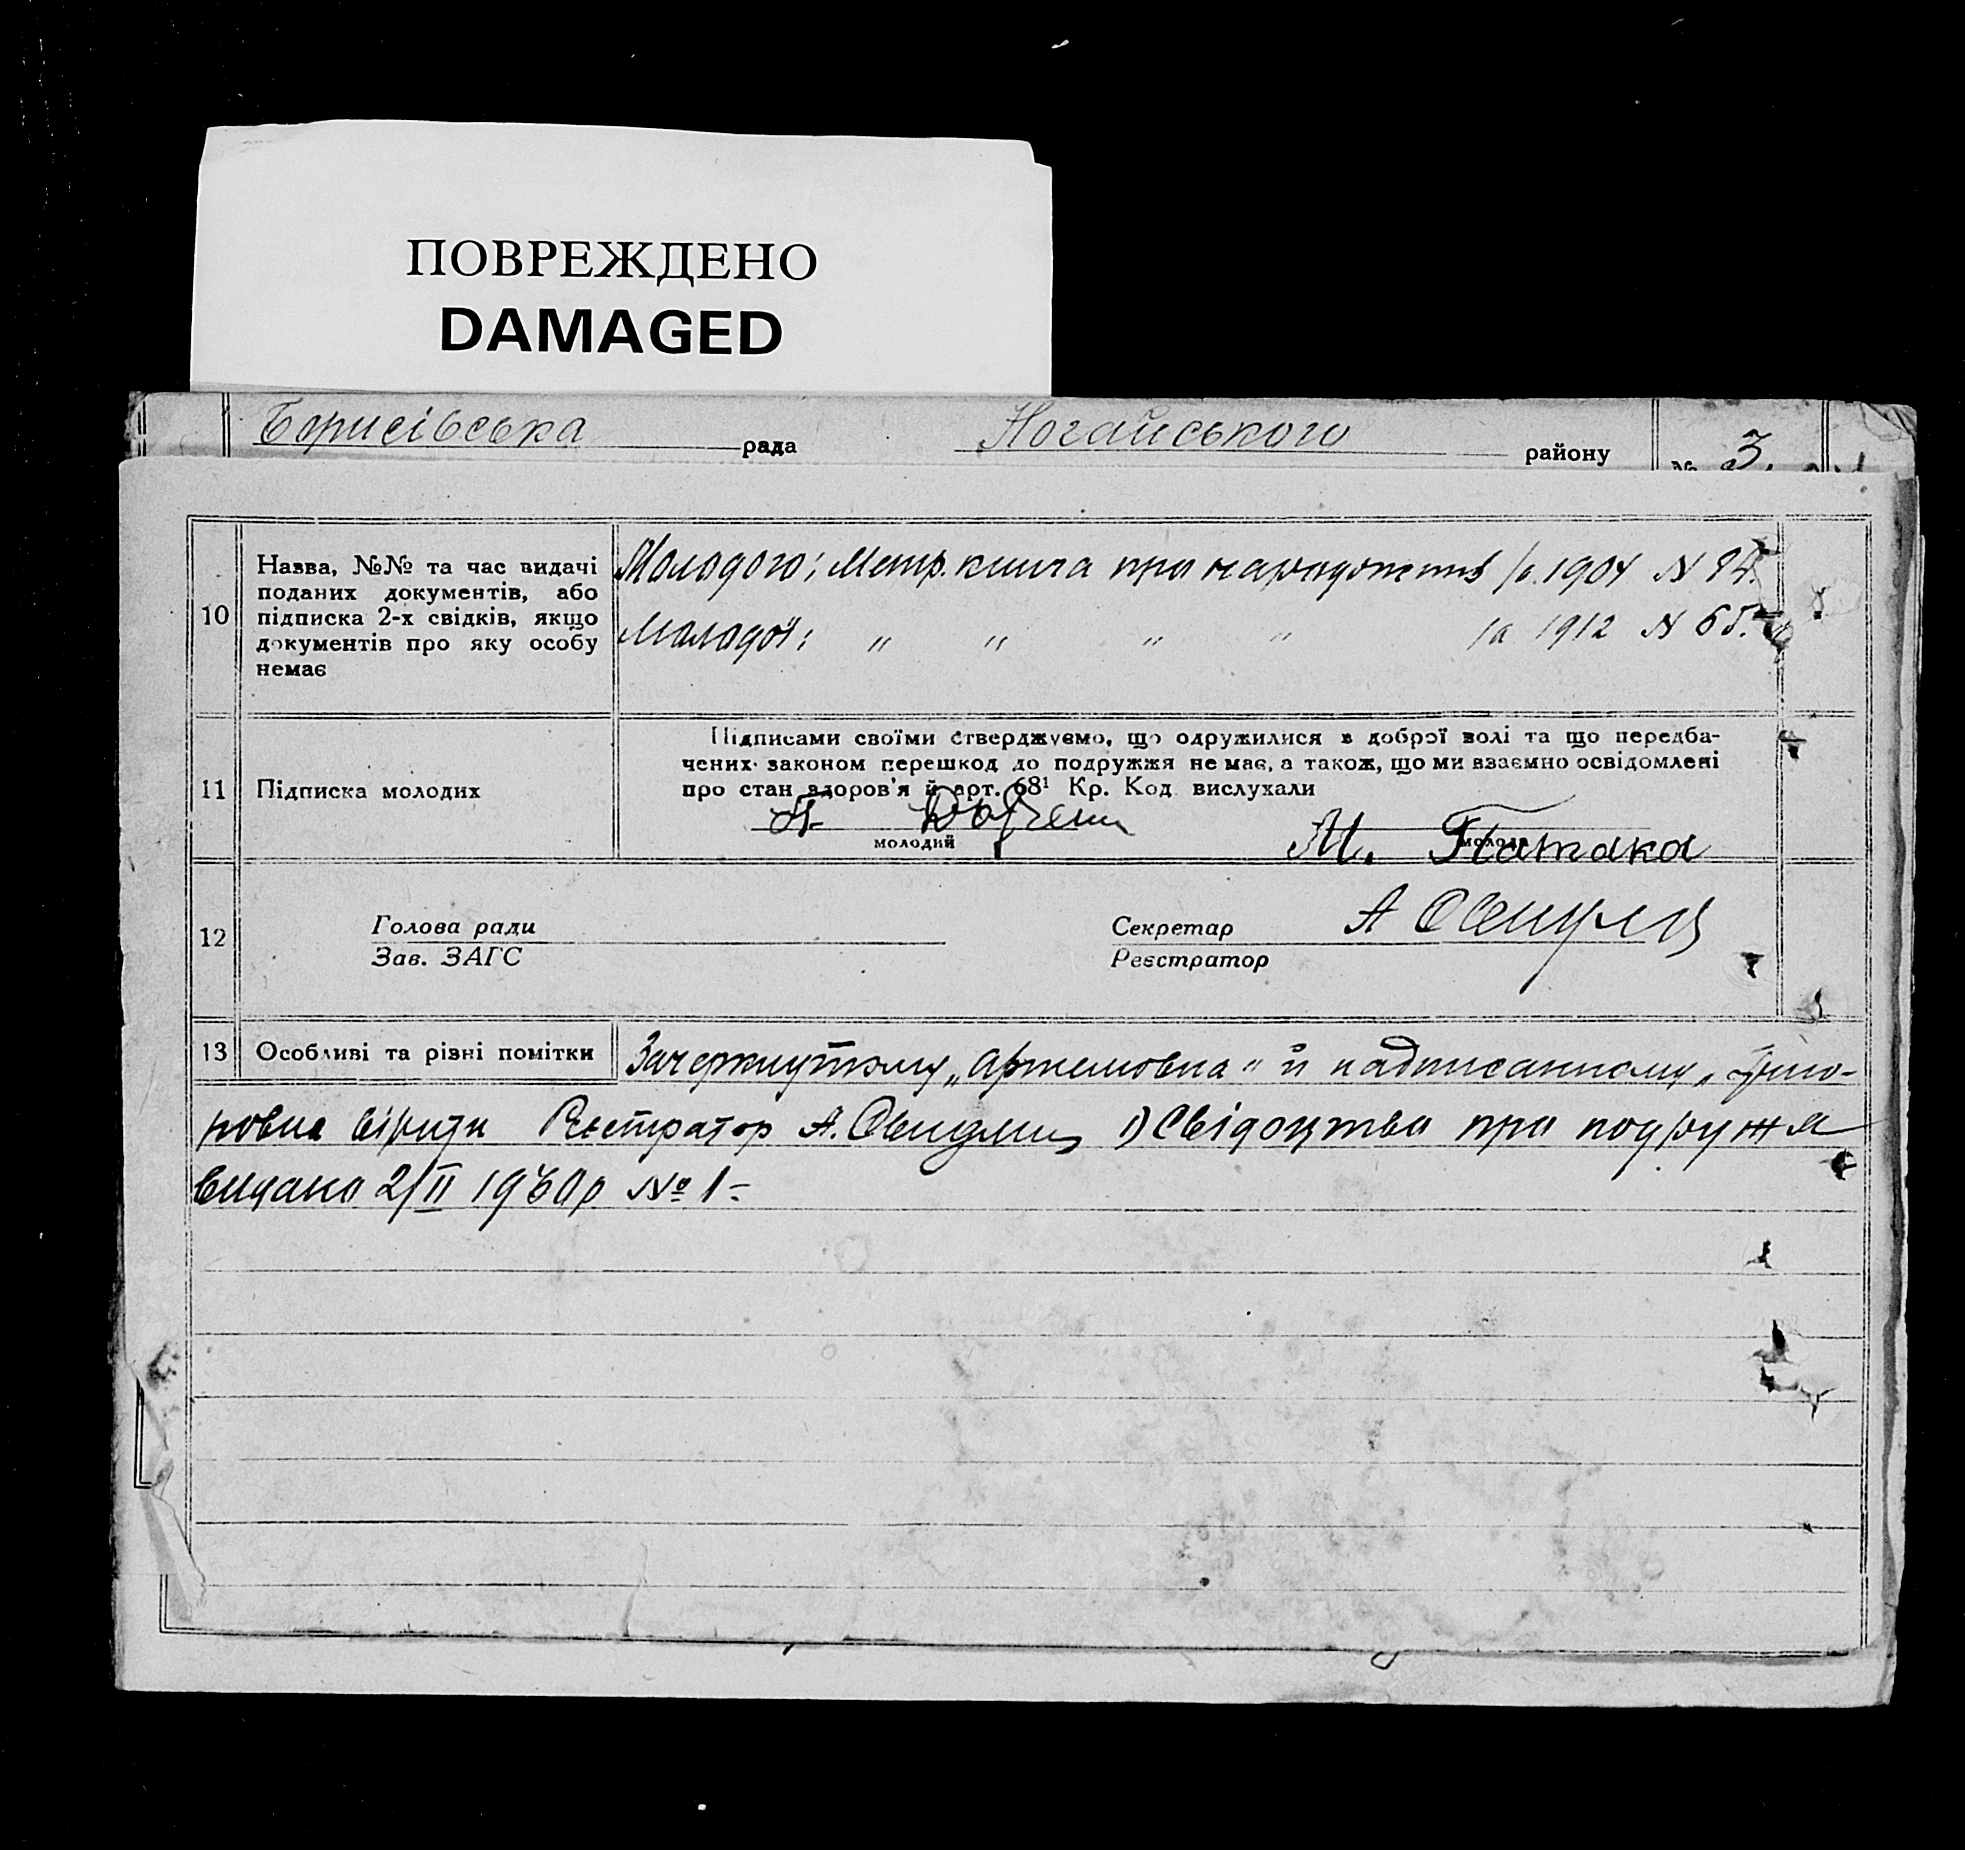 ПОВРЕЖДЕНО
DAMAGED
Борисівська рада Ногайського району № 3.
10 Назва, №№ та час видачі поданих документів, або підписка 2-х свідків, якщо документів про яку особу немає
Молодого: Метр. книга про народження за 1904 N
Молодої: „ „ „ „ за 1912 N 65.
11 Підписка молодих
Підписами своїми стверджуємо, що одружилися в доброї волі та що передба-
чених законом перешкод до подружжя немає, а також, що ми взаємно освідомлені
про стан здоров'я й арт. 68¹ Кр. Код вислухали
молодий
молода
М. Патака
12 Голова ради
Зав. ЗАГС
Секретар
Реєстратор
А
13 Особливі та різні помітки
Зачеркнутому „Артемовна“ й надписанному
вірити Реєстратор А. 1) Свідоцтво про подружжя
видано 2/II 1930 р № 1-